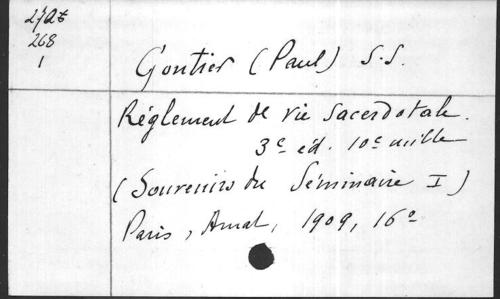 268
1
Gontier (Paul) S.S.
Règlement de vie sacerdotale.
3e éd. 10e mille
(Souvenirs du Séminaire I)
Paris, Amat, 1909, 16o